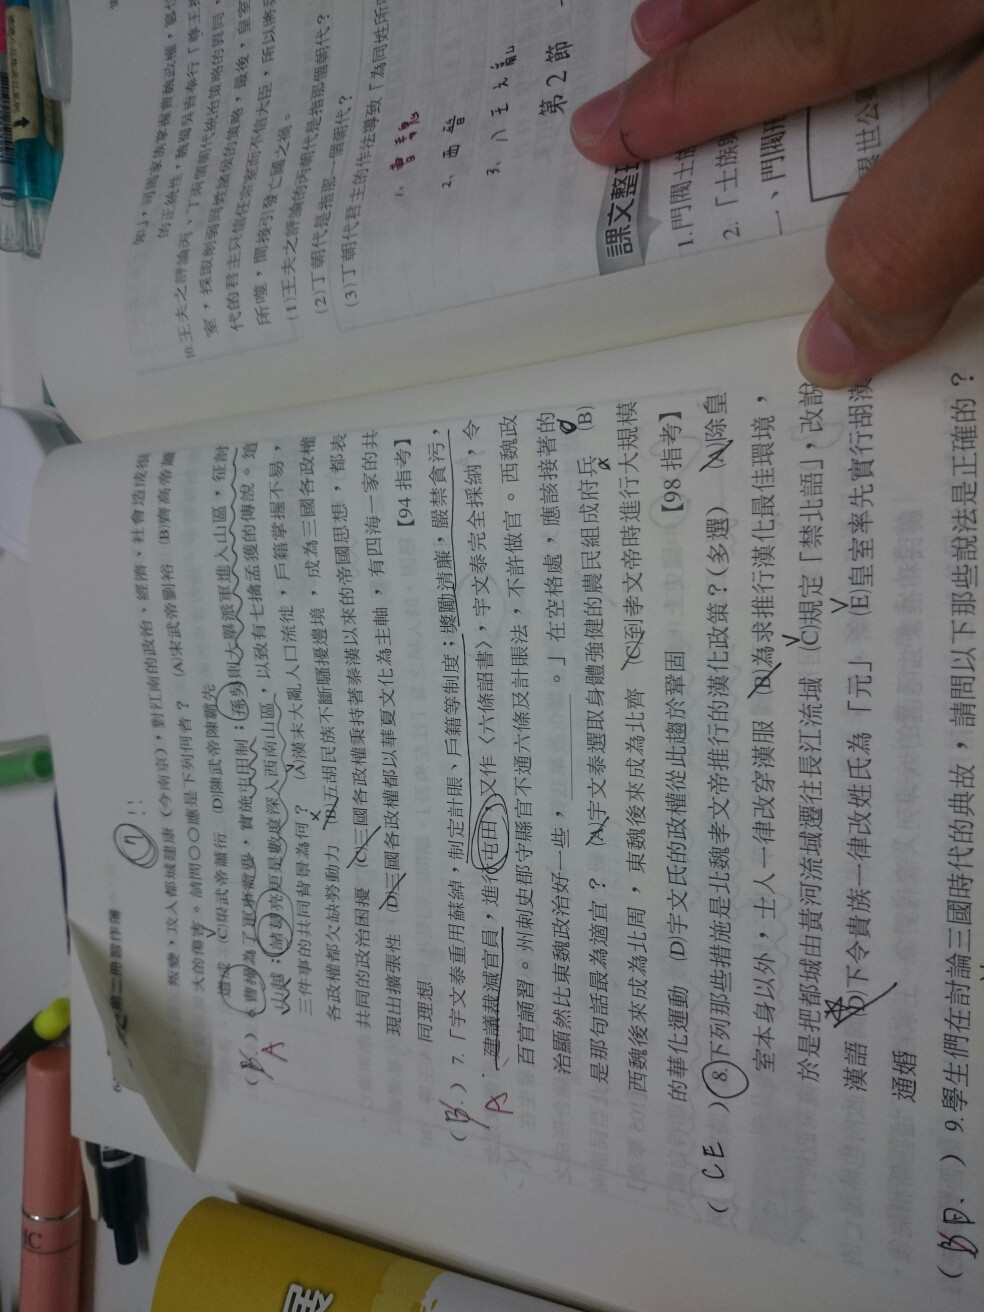 第二冊習作簿
叛變，攻入都城建康（今南京），對江南的政治、經濟、社會造成很
大的傷害。請問○○應是下列何者？ (A)宋武帝劉裕 (B)齊高帝蕭
道成 (C)梁武帝蕭衍 (D)陳武帝陳霸先
6.曹操為了更
實施屯田制；孫吳則大舉派軍進入山區，征討
山越；諸葛亮更是數度深入西南山區，以致有七擒孟獲的傳說。這
三件事的共同背景為何？ (A)漢末大亂人口流徙，戶籍掌握不易，
各政權都欠缺勞動力 (B)五胡民族不斷騷擾邊境，成為三國各政權
共同的政治困擾 (C)三國各政權秉持著秦漢以來的帝國思想，都表
現出擴張性 (D)三國各政權都以華夏文化為主軸，有四海一家的共
同理想 【94指考】
A
(B.) 7.「宇文泰重用蘇綽，制定計賬、戶籍等制度；獎勵清廉，嚴禁貪污，
建議裁減官員，進行屯田，又作〈六條詔書〉，宇文泰完全採納，令
百官誦習。州刺史郡守縣官不通六條及計賬法，不許做官。西魏政
治顯然比東魏政治好一些，________。」在空格處，應該接著的
是那句話最為適宜？ (A)宇文泰選取身體強健的農民組成府兵 (B)
西魏後來成為北周，東魏後來成為北齊 (C)到孝文帝時進行大規模
的華化運動 (D)宇文氏的政權從此趨於鞏固 【98指考】
A
(CE) 8.下列那些措施是北魏孝文帝推行的漢化政策？(多選) (A)除皇
室本身以外，士人一律改穿漢服 (B)為求推行漢化最佳環境，
於是把都城由黃河流域遷往長江流域 (C)規定「禁北語」，改說
漢語 (D)下令貴族一律改姓氏為「元」 (E)皇室率先實行胡漢
通婚
(B D.) 9.學生們在討論三國時代的典故，請問以下那些說法是正確的？
10.王夫之評論丙、丁兩個朝代統治策略的異同，
代的君主只信任宗室而不信大臣，所以將
所噬，間接引發亡國之禍。
(1)王夫之評論的丙朝代是指那個朝代？
(2)丁朝代是指那一個朝代？
(3)丁朝代君主的作法導致「為同姓所
1. 曹魏
2. 西晉
3. 八王之亂
第2節
課文整
1.門閥士族
2.「士族與
一、門閥形